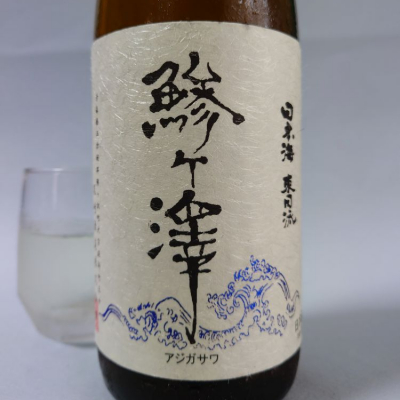 日本海 東回流
鰺ヶ澤
アジガサワ